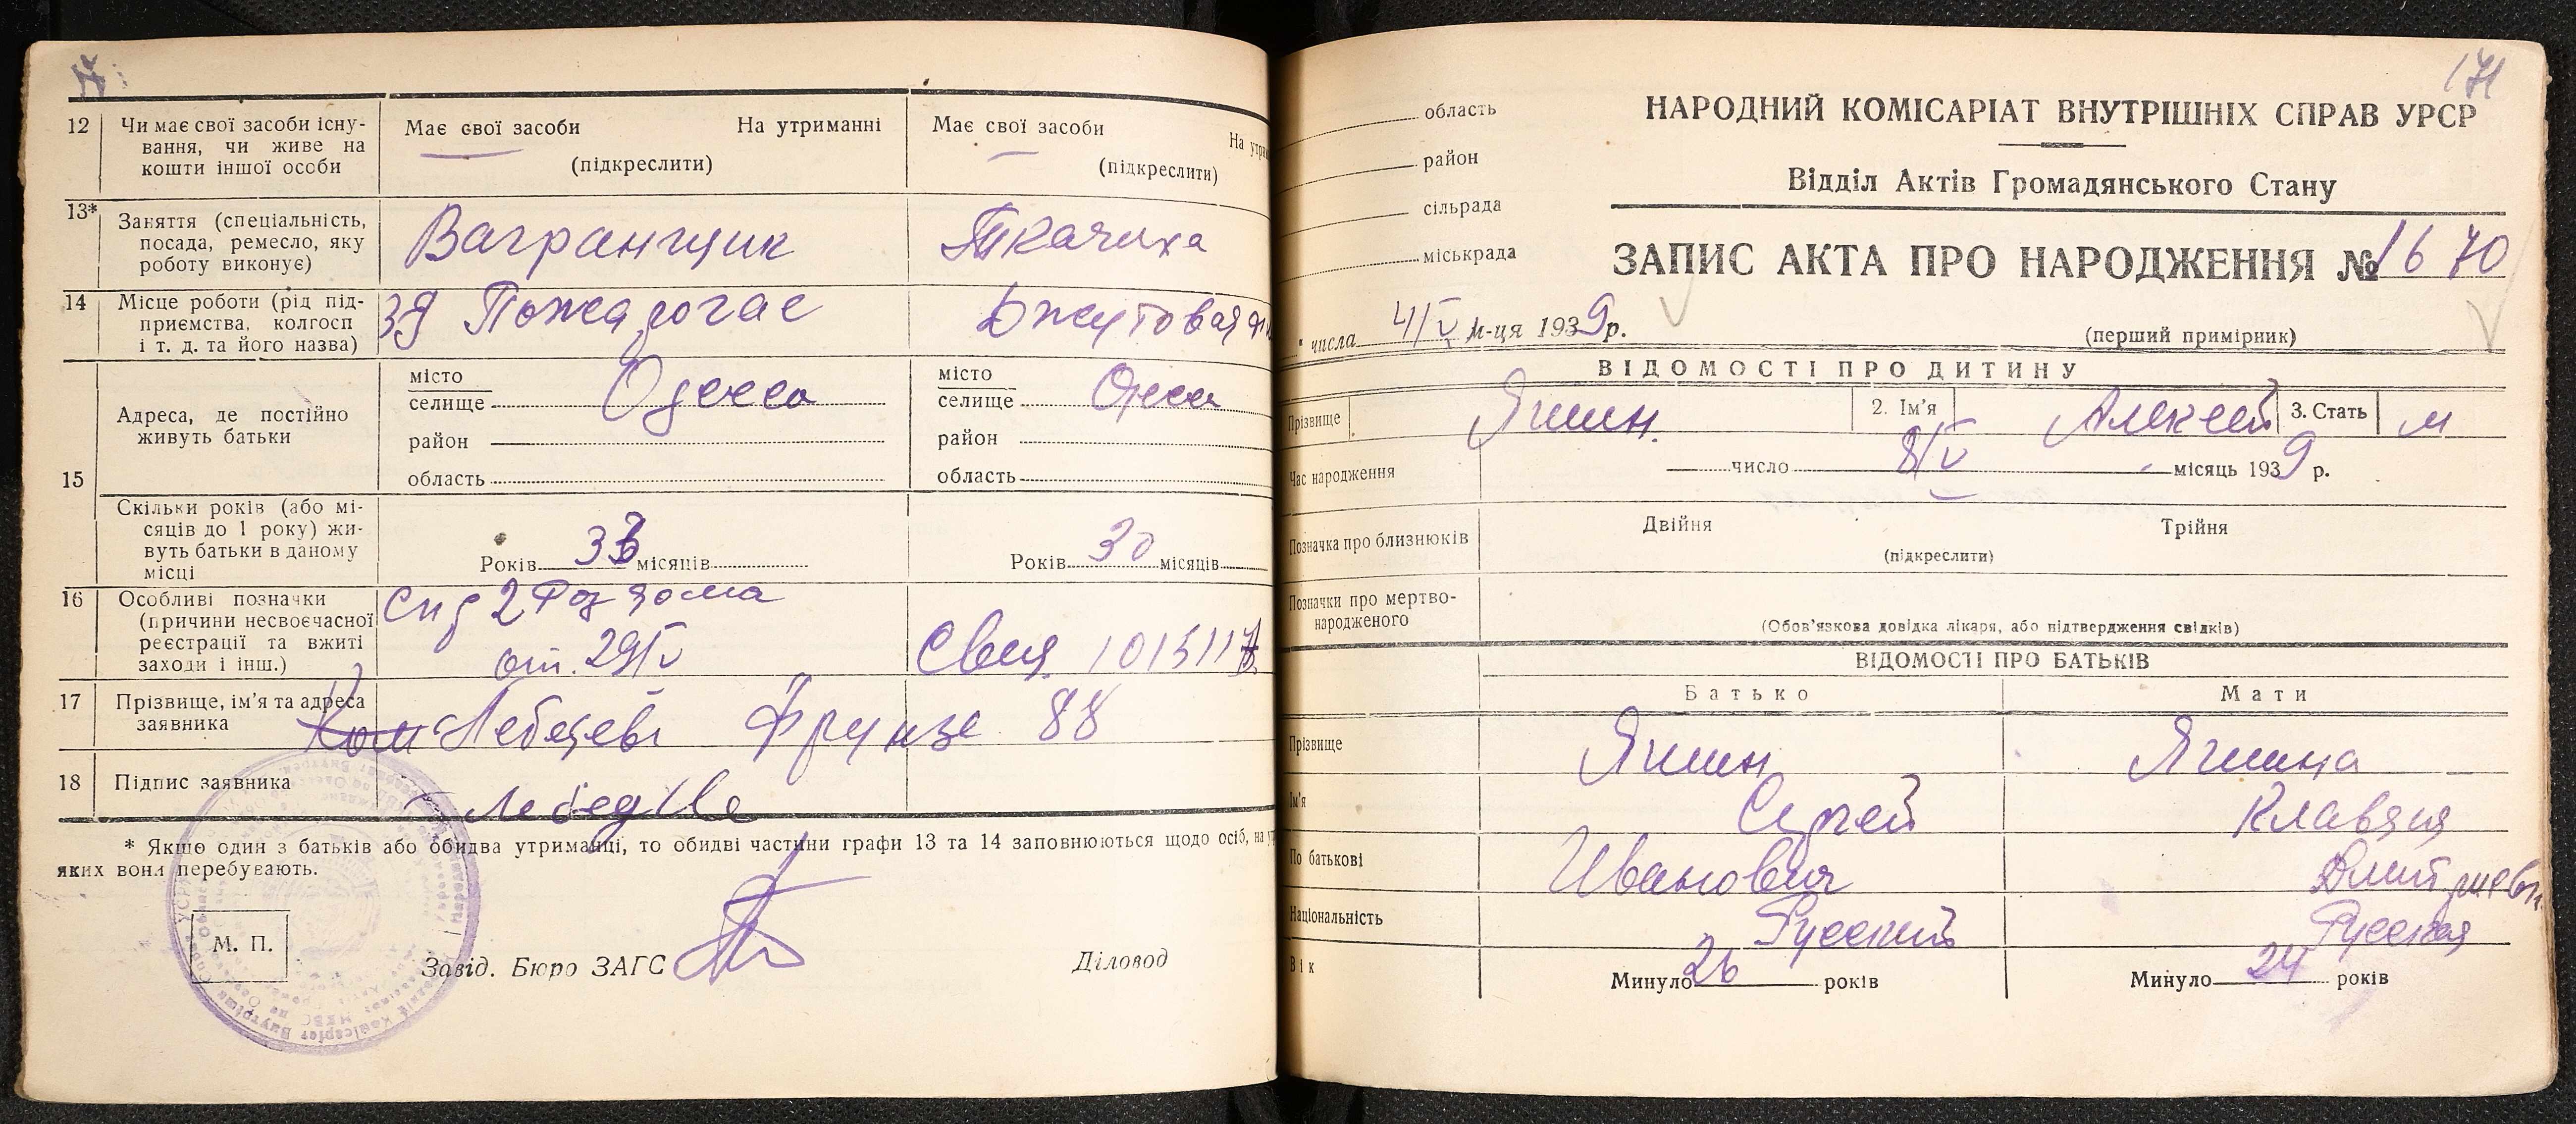 12 Чи має свої засоби існу-
вання, чи живе на
кошти іншої особи
Має свої засоби На утриманні
(підкреслити)
Має свої засоби На утрим
(підкреслити)
13* Заняття (спеціальність,
посада, ремесло, яку
роботу виконує)
Вагранщик
Ткачиха
14 Місце роботи (рід під-
приємства, колгосп
і т. д. та його назва)
Джутовая
15 Адреса, де постійно
живуть батьки
місто
селище Одесса
район
область
місто
селище Одесса
район
область
Скільки років (або мі-
сяців до 1 року) жи-
вуть батьки в даному
місці
Років 33 місяців
Років 30 місяців
16 Особливі позначки
(причини несвоєчасної
реєстрації та вжиті
заходи і інш.)
2 Род дома
от 29/IV
17 Прізвище, ім'я та адреса
заявника
Фрунзе 88
18 Підпис заявника
* Якщо один з батьків або обидва утриманці, то обидві частини графи 13 та 14 заповнюються щодо осіб, на у
яких вони перебувають.
М. П.
Завід. Бюро ЗАГС
Діловод
171
область
район
сільрада
міськрада
НАРОДНИЙ КОМІСАРІАТ ВНУТРІШНІХ СПРАВ УРСР
Відділ Актів Громадянського Стану
ЗАПИС АКТА ПРО НАРОДЖЕННЯ № 1670
" числа 4/V м-ця 1939 р.
(перший примірник)
ВІДОМОСТІ ПРО ДИТИНУ
Прізвище Ягшин 2. Ім'я Алексей 3. Стать м
Час народження число 8/V місяць 1939 р.
Позначка про близнюків
Двійня Трійня
(підкреслити)
Позначки про мертво-
народженого
(Обов'язкова довідка лікаря, або підтвердження свідків)
ВІДОМОСТІ ПРО БАТЬКІВ
Батько Мати
Прізвище Ягшин Ягшина
Ім'я Сергей Клавдия
По батькові Иванович Дмитриевн
Національність Русский Русская
Вік
Минуло 26 років
Минуло 24 років